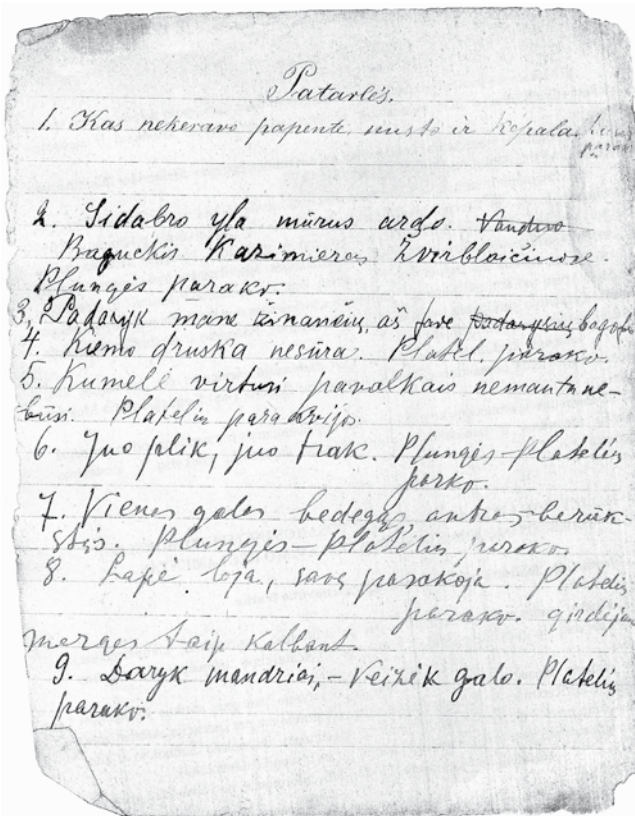 Patarlės.
1. Kas nekeravo papente, nusto ir kepala.
2. Sidabro yla mūrus ardo. Vanduo
Baguckis Kazimieras Žvirblaičiuose.
Plungės parako.
3. Padaryk mane žinančiu, aš tave padarysiu bagotu
4. Kiemo druska nesūra. Platel. parako.
5. Kumelė virtusi pavalkais nemautu ne-
būsi. Platelių paraavijos.
6. Juo plik, juo trak. Plungės-Platelių
parko.
7. Vienas galas bedegąs, antras berūk-
stąs. Plungės-Platelių parako.
8. Lapė loja, savę pasakoja. Platelių
parako. girdėjau
merges taip kalbant.
9. Daryk mandriai,-veizėk galo. Platelių
parako.